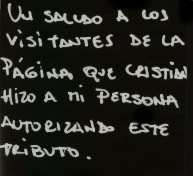 UN SALUDO A LOS
VISITANTES DE LA
PÁGINA QUE CRISTIAN
HIZO A MI PERSONA
AUTORIZANDO ESTE
TRIBUTO.